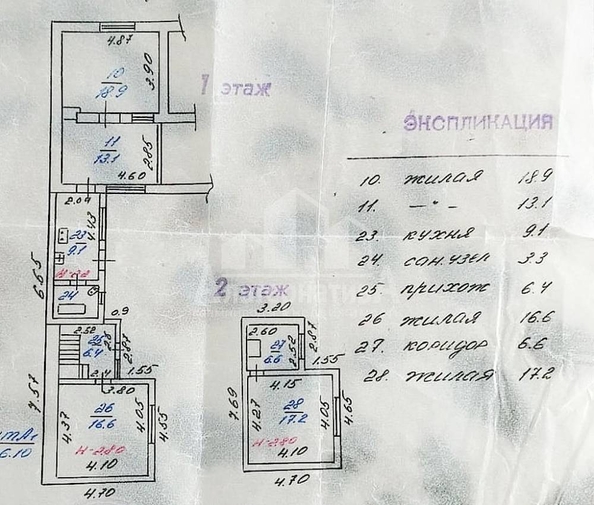 4.87
10
18.9
3.90
1 этаж
11
13.1
2.85
4.60
2.04
4.43
23
9.1
6.65
24
0.9
2.52
25
6.4
2.87
1.55
3.80
7.57
4.37
26
16.6
4.05
4.55
н-280
4.10
4.70
6.10
2 этаж
3.20
2.60
27
6.6
2.52
2.87
1.55
4.15
7.69
4.27
28
17.2
4.05
4.65
н-280
4.10
4.70
ЭКСПЛИКАЦИЯ
10. жилая 18.9
11. —"— 13.1
23. кухня 9.1
24. сан. узел 3.3
25 прихож 6.4
26 жилая 16.6
27. коридор 6.6
28. жилая 17.2